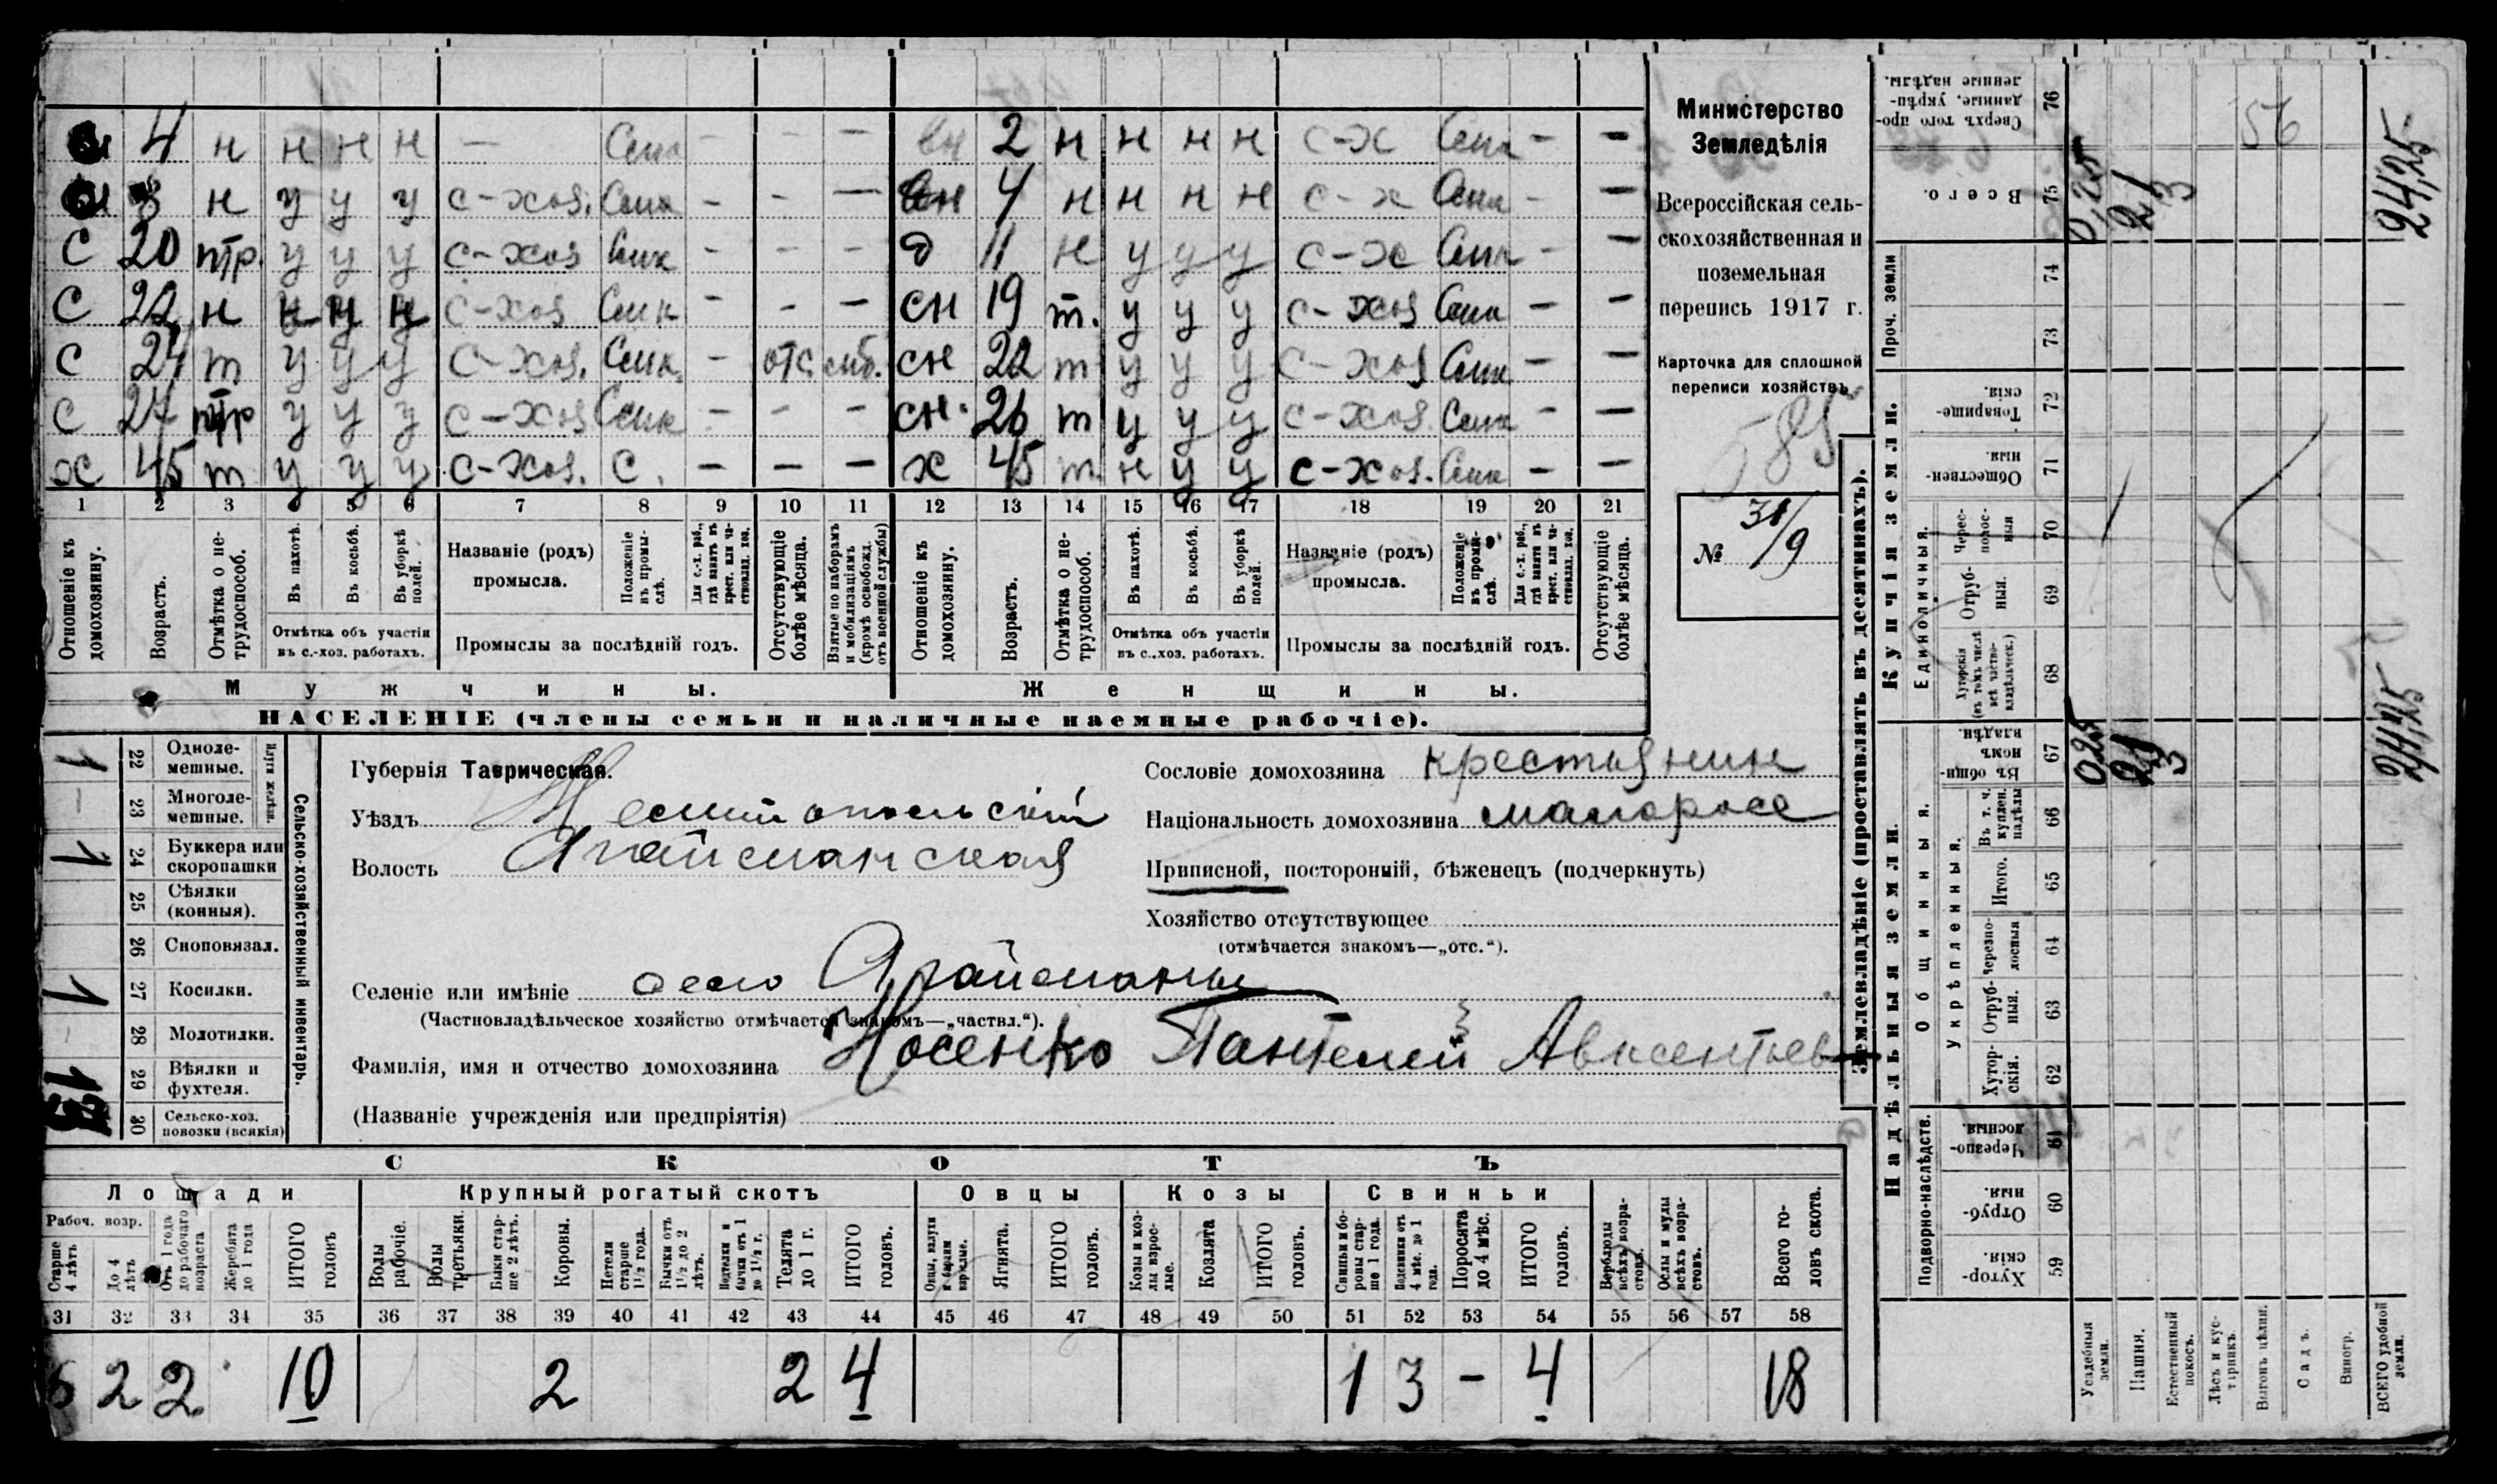 вн 4 н н н н — Семк — — — вн 2 н н н н с-х Семк — —
вн 8 н у у у с-хоз. Семк — — — вн 4 н н н н с-х Семк — —
с 20 тр. у у у с-хоз Семк — — — д 11 н у у у с-х Семк — —
с 22 н н н н с-хоз Семк — — — сн 19 т. у у у с-хоз Семк — —
с 24 т у у у с-хоз. Семк. — отс. моб. сн 22 т у у у с-хоз Семк — —
с 27 тр у у у с-хоз Семк — — — сн. 26 т у у у с-хоз. Семк — —
х 45 т у у у с-хоз. С. — — — х 45 т. н у у с-хоз. Семк — —
1 2 3 4 5 6 7 8 9 10 11 12 13 14 15 16 17 18 19 20 21
Отношеніе къ домохозяину.
Возрастъ.
Отмѣтка о не-трудоспособ.
Въ пахотѣ.
Въ косьбѣ.
Въ уборкѣ полей.
Отмѣтка объ участіи
въ с.-хоз. работахъ.
Названіе (родъ)
промысла.
Положеніе въ промы-слѣ.
Для с.-х. раб., гдѣ занятъ въ крест. или ча-стновлад. хоз.
Промыслы за послѣдній годъ.
Отсутствующіе болѣе мѣсяца.
Взятые по наборамъ и мобилизаціямъ (кромѣ освобожд. отъ военной службы)
Отношеніе къ домохозяину.
Возрастъ.
Отмѣтка о не-трудоспособ.
Въ пахотѣ.
Въ косьбѣ.
Въ уборкѣ полей.
Отмѣтка объ участіи
въ с..хоз. работахъ.
Названіе (родъ)
промысла.
Положеніе въ промы-слѣ.
Для с.-х. раб., гдѣ занятъ въ крест. или ча-стновлад. хоз.
Промыслы за послѣдній годъ.
Отсутствующіе болѣе мѣсяца.
Мужчины.
Женщины.
НАСЕЛЕНІЕ (члены семьи и наличные наемные рабочіе).
Министерство
Земледѣлія
Всероссійская сель-
скохозяйственная и
поземельная
перепись 1917 г.
Карточка для сплошной
переписи хозяйствъ
585
№ 31/9
Сельско-хозяйственный инвентарь.
Плуги желѣзн.
22 Одноле-мешные. 1
23 Многоле-мешные. —
24 Буккера или скоропашки 1
25 Сѣялки (конныя).
26 Сноповязал.
27 Косилки. 1
28 Молотилки.
29 Вѣялки и фухтеля.
30 Сельско-хоз. повозки (всякія)
Губернія Таврическая.
Уѣздъ Мелитопольскій
Волость Агайманская
Селеніе или имѣніе село Агайманы
(Частновладѣльческое хозяйство отмѣчается знакомъ—„частвл.“).
Фамилія, имя и отчество домохозяина Носенко Пантелей Авксентьев
(Названіе учрежденія или предпріятія)
Сословіе домохозяина крестьянин
Національность домохозяина малоросс
Приписной, посторонній, бѣженецъ (подчеркнуть)
Хозяйство отсутствующее
(отмѣчается знакомъ—„отс.“).
СКОТЪ
Лошади
Крупный рогатый скотъ
Овцы
Козы
Свиньи
Рабоч. возр.
Старше 4 лѣтъ
До 4 лѣтъ
Отъ 1 года до рабочаго возраста
Жеребята до 1 года
ИТОГО головъ
Волы рабочіе.
Волы третьяки.
Быки стар-ше 2 лѣтъ.
Коровы.
Нетели старше 1½ года.
Бычки отъ 1½ до 2 лѣтъ.
Подтелки и бычки отъ 1 до 1½ г.
Телята до 1 г.
ИТОГО головъ.
Овцы, валухи и бараны взрослые.
Ягнята.
ИТОГО головъ.
Козы и коз-лы взрос-лые.
Козлята
ИТОГО головъ.
Свиньи и бо-ровы стар-ше 1 года.
Подсвинки отъ 4 мѣс. до 1 года.
Поросята до 4 мѣс.
ИТОГО головъ.
Верблюды всѣхъ возра-стовъ.
Ослы и мулы всѣхъ возра-стовъ.
Всего го-ловъ скота.
31 32 33 34 35 36 37 38 39 40 41 42 43 44 45 46 47 48 49 50 51 52 53 54 55 56 57 58
6 2 2 10 2 2 4 1 3 — 4 18
Землевладѣніе (проставлять въ десятинахъ).
Надѣльныя земли.
Купчія земли.
Подворно-наслѣдств.
Общинныя.
Укрѣпленныя.
Единоличныя.
Проч. земли
59 Хутор-скія.
60 Отруб-ныя.
61 Черезпо-лосныя.
62 Хутор-скія.
63 Отруб-ныя.
64 Черезпо-лосныя
65 Итого.
66 Въ т. ч. куплен. надѣлы
67 Въ общи-номъ владѣн.
68 Хуторскія (въ томъ числѣ всѣ частно-владѣльческ.)
69 Отруб-ныя.
70 Черес-полос-ныя
71 Обществен-ныя.
72 Товарище-скія.
73
74
75 Всего.
76 Сверхъ того про-данные, укрѣп-ленные надѣлы.
Усадебныя земли. 0,25 0,25
Пашня. 21 21
Естественный покосъ. 3 3
Лѣсъ и кус-тарникъ.
Выгонъ цѣлин. 56
Садъ.
Виногр.
ВСЕГО удобной земли. 24,25 24,25